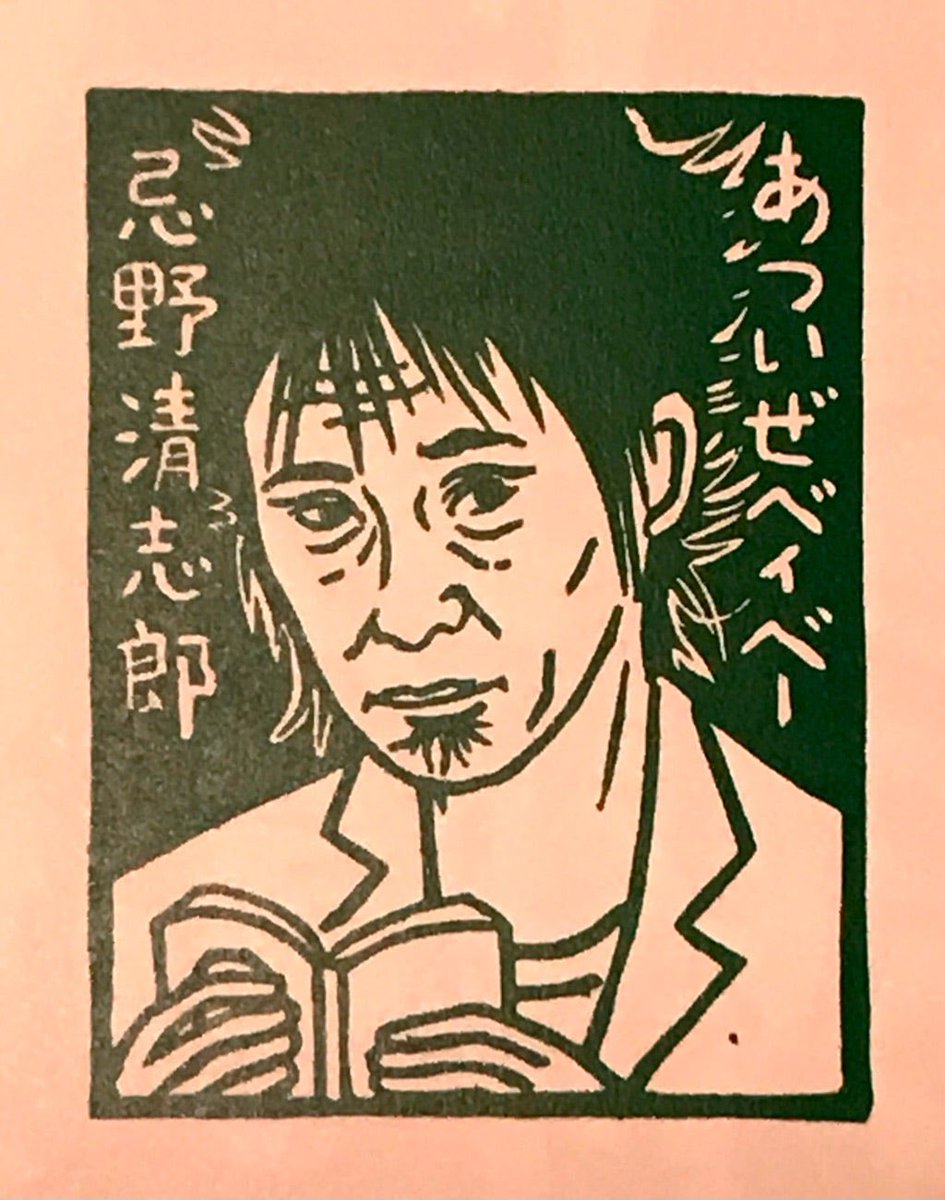 あついぜベイベー
忌野清志郎